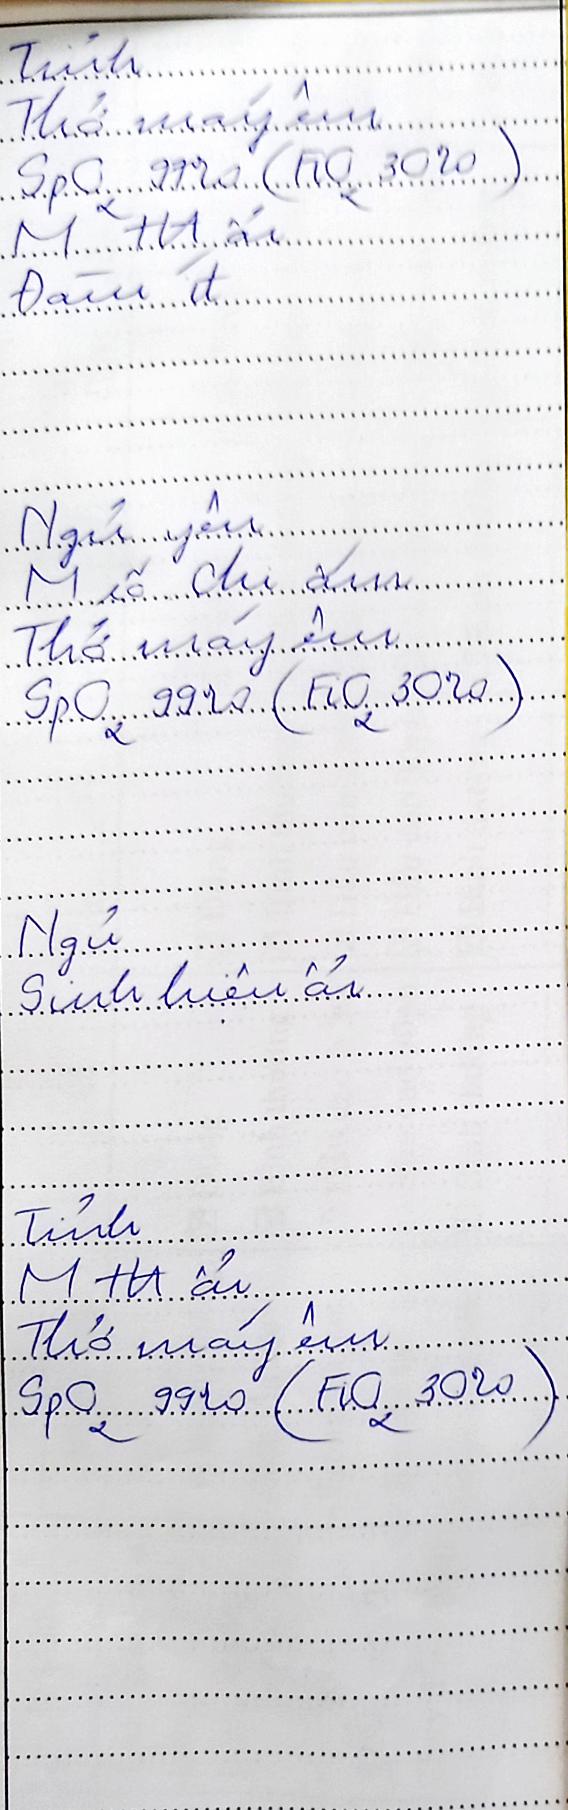 Tỉnh
Thở máy êm
SpO2 99% (FiO2 30%)
M HA ổn
Đàm ít
Ngủ yên
M rõ chi ấm
Thở máy êm
SpO2 99% (FiO2 30%)
Ngủ
Sinh hiệu ổn
Tỉnh
M HA ổn
Thở máy êm
SpO2 99% (FiO2 30%)